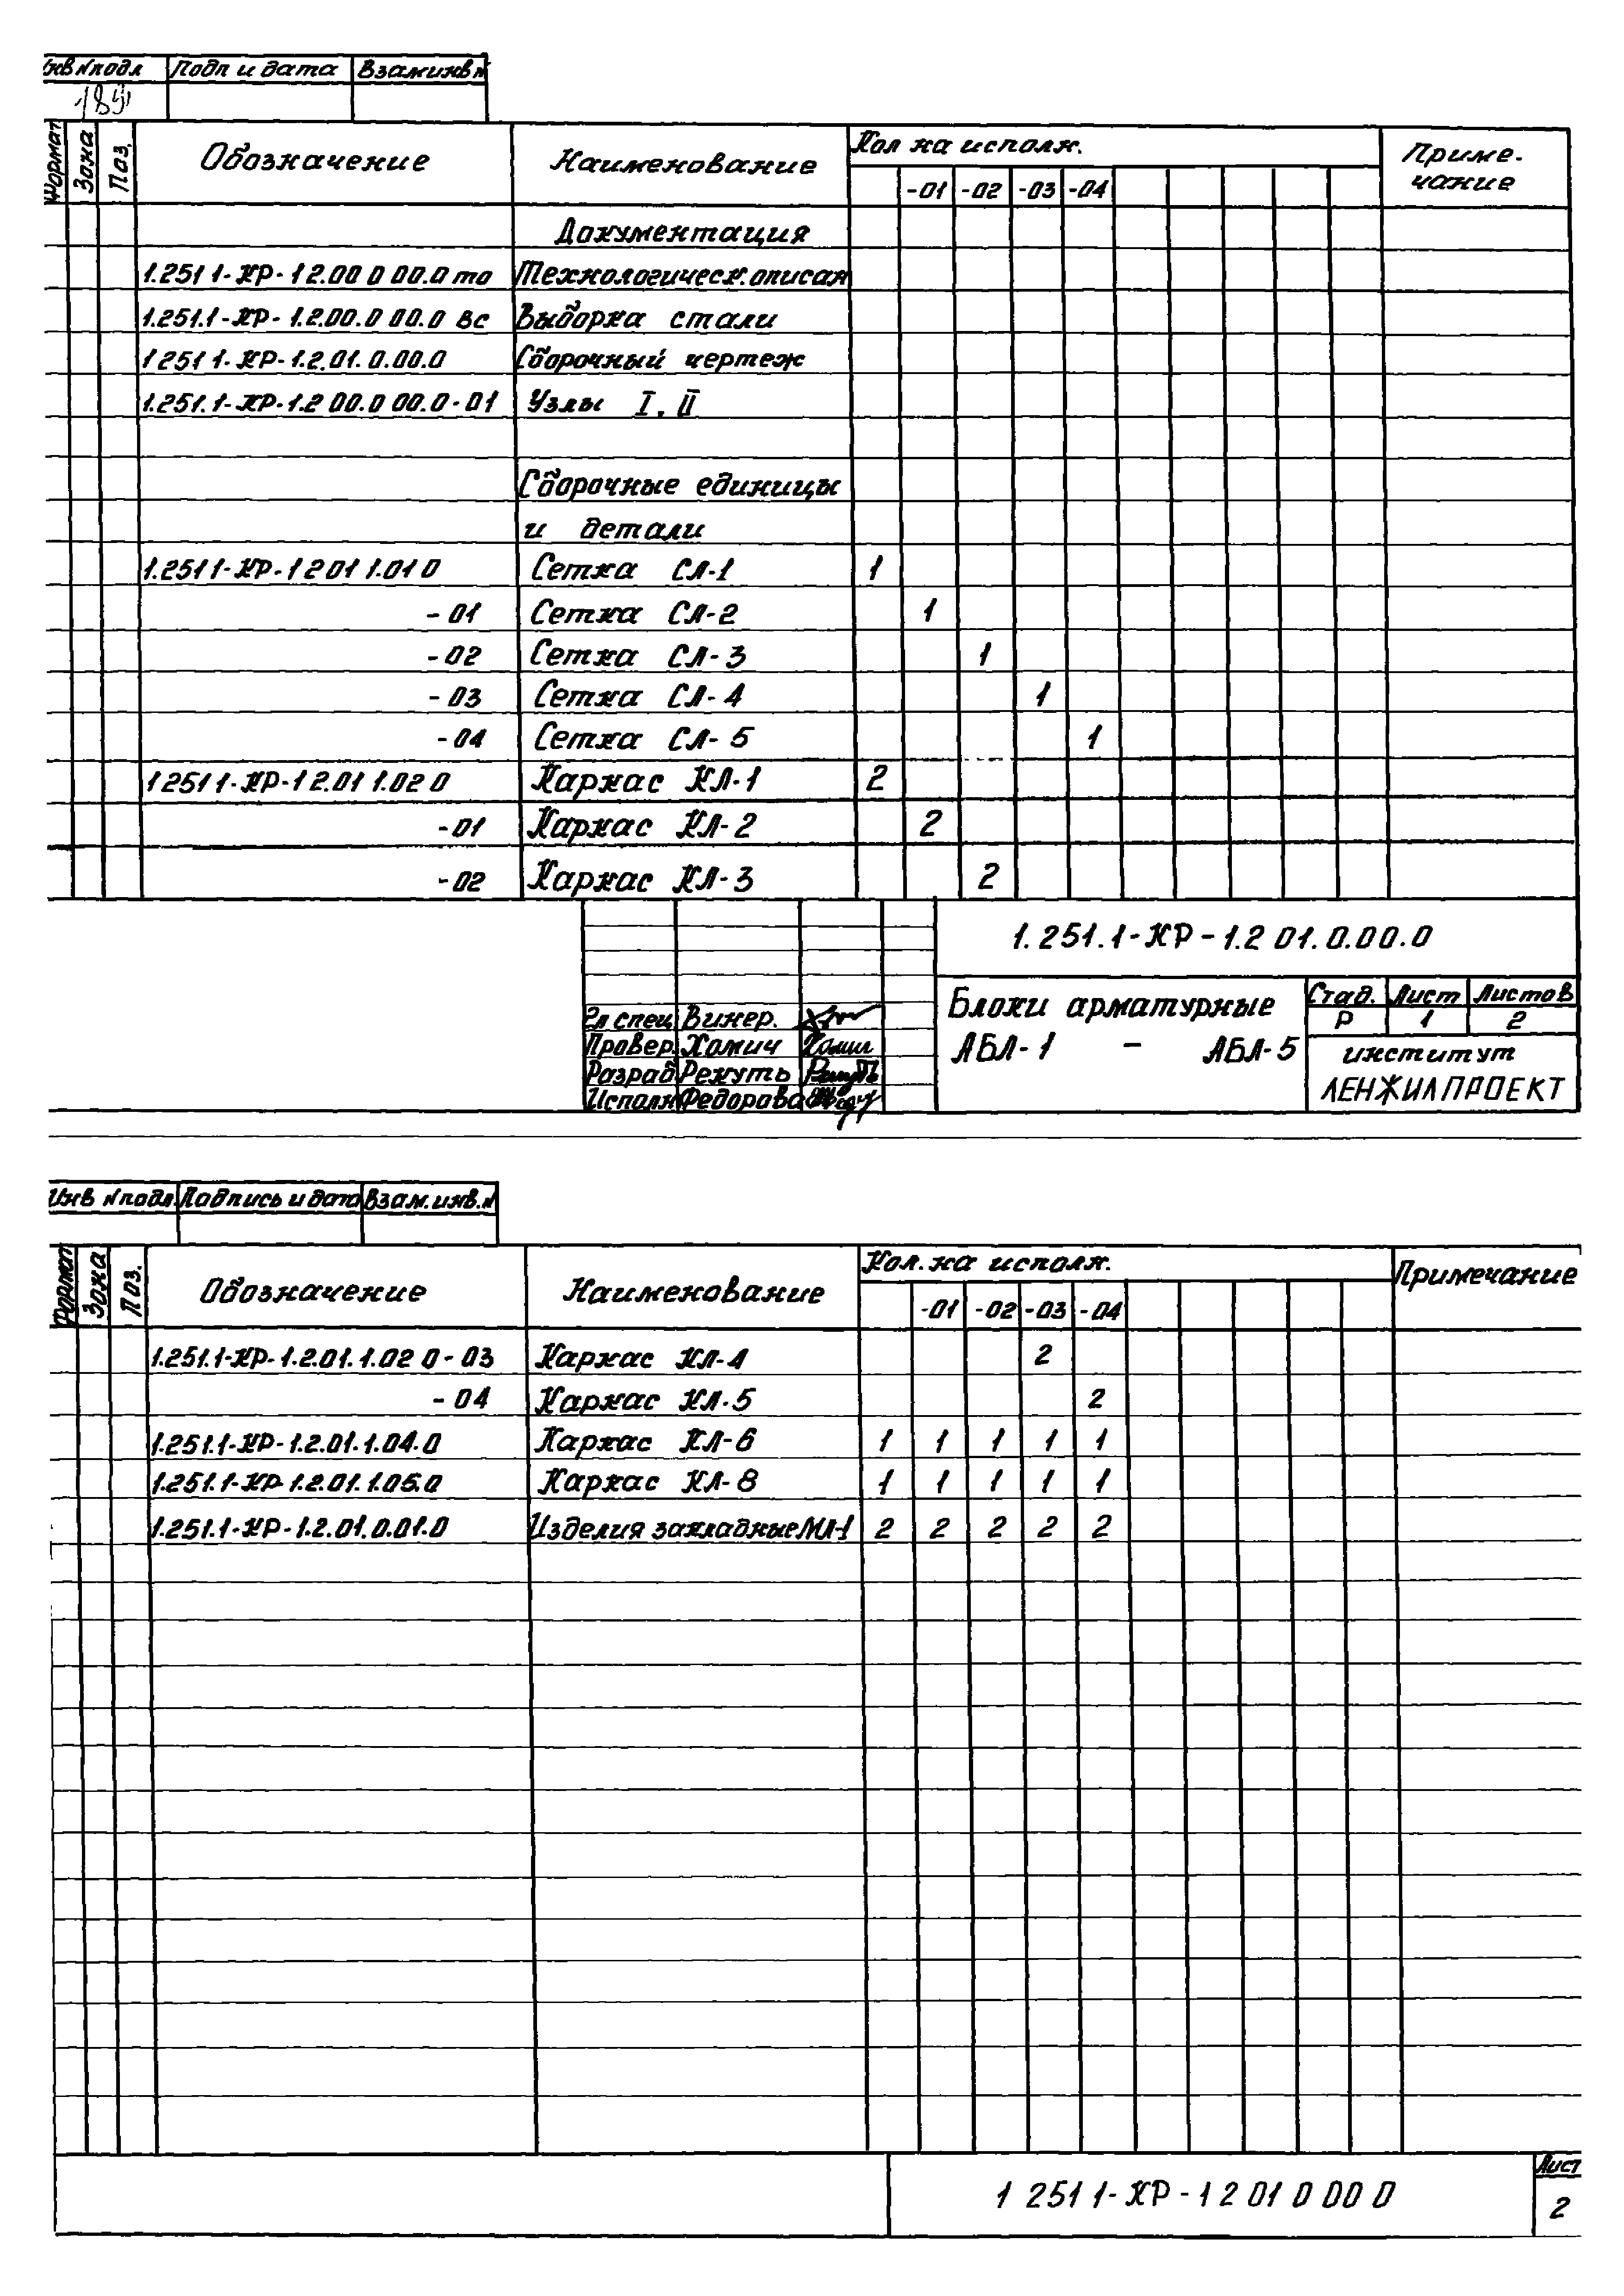 Инв № подл Подп и дата Взам инв №
Формат Зона Поз. Обозначение Наименование Кол на исполн. Приме-
чание
-01 -02 -03 -04
Документация
1.251 1-КР-1 2.00 0 00.0 то Технологическ. описан
1.251.1-КР-1.2.00.0 00.0 вс Выборка стали
1 251 1-КР-1.2.01.0.00.0 Сборочный чертеж
1.251.1-КР-1.2 00.0 00.0-01 Узлы I, II
Сборочные единицы
и детали
1.251 1-КР-1 2 01 1.01 0 Сетка СЛ-1 1
-01 Сетка СЛ-2 1
-02 Сетка СЛ-3 1
-03 Сетка СЛ-4 1
-04 Сетка СЛ-5 1
1 251 1-КР-1 2.01 1.02 0 Каркас КЛ-1 2
-01 Каркас КЛ-2 2
-02 Каркас КЛ-3 2
1.251.1-КР-1.2 01.0.00.0
Блоки арматурные
АБЛ-1 - АБЛ-5
Стад. Лист Листов
Р 1 2
институт
ЛЕНЖИЛПРОЕКТ
Гл спец Винер.
Провер. Хомич
Разраб Рекуть
Исполн Федорова
Инв № подл. Подпись и дата Взам. инв. №
Формат Зона Поз. Обозначение Наименование Кол. на исполн. Примечание
-01 -02 -03 -04
1.251.1-КР-1.2.01.1.02 0-03 Каркас КЛ-4 2
-04 Каркас КЛ-5 2
1.251.1-КР-1.2.01.1.04.0 Каркас КЛ-6 1 1 1 1 1
1.251.1-КР-1.2.01.1.05.0 Каркас КЛ-8 1 1 1 1 1
1.251.1-КР-1.2.01.0.01.0 Изделия закладные МЛ-1 2 2 2 2 2
1 251 1-КР-1 2 01 0 00 0
Лист
2